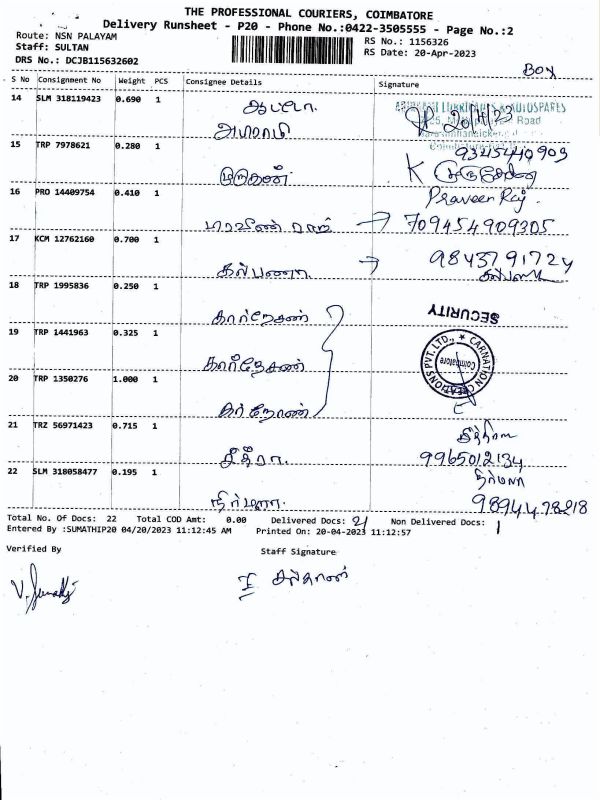 THE PROFESSIONAL COURIERS, COIMBATORE
Delivery Runsheet - P20 - Phone No.:0422-3505555 - Page No.:2
Route: NSN PALAYAM
Staff: SULTAN
DRS No.: DCJB115632602
RS No.: 1156326
RS Date: 20-Apr-2023
BOX
S No Consignment No Weight PCS Consignee Details Signature
14 SLM 318119423 0.690 1
20/4/23
15 TRP 7978621 0.280 1
9345440903
முருகன்
K
16 PRO 14409754 0.410 1
Praveen Raj.
பிரவீண் ராஜ் → 709454909305
17 KCM 12762160 0.700 1
கல்பனா → 9843791724
18 TRP 1995836 0.250 1
SECURITY
19 TRP 1441963 0.325 1
CARNATION CREATIONS PVT. LTD., ★
Coimbatore
20 TRP 1350276 1.000 1
21 TRZ 56971423 0.715 1
9965012134
22 SLM 318058477 0.195 1
நிர்மலா
நிர்மலா. 9894478218
Total No. Of Docs: 22 Total COD Amt: 0.00 Delivered Docs: 21 Non Delivered Docs: 1
Entered By :SUMATHIP20 04/20/2023 11:12:45 AM Printed On: 20-04-2023 11:12:57
Verified By Staff Signature
சுல்தான்